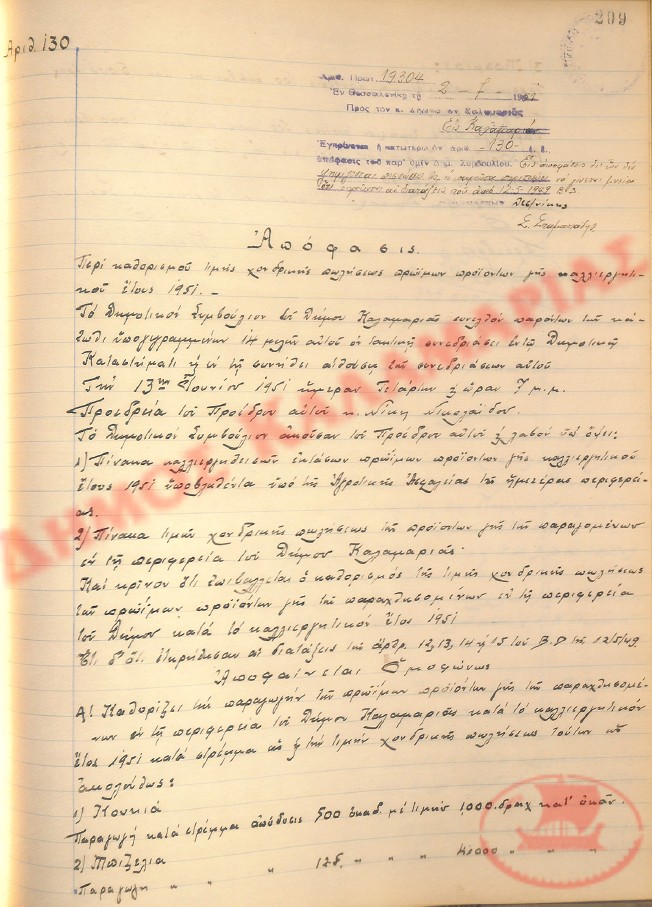 209
Αριθ. 130
Αριθ. Πρωτ. 19304
Ἐν Θεσσαλονίκῃ τῇ 2-7-1951
Πρὸς τὸν κ. Δήμαρχον Καλαμαριᾶς
Εἰς Καλαμαριάν
Ἐγκρίνεται ἡ κατωτέρω ὑπ' ἀριθ. -130-
ἀπόφασις τοῦ παρ' ὑμῖν Δημ. Συμβουλίου.
αἱ διατάξεις τοῦ ἀπὸ 12-5-1949 Β.Δ.
Ἀπόφασις.
Περὶ καθορισμοῦ τιμῆς χονδρικῆς πωλήσεως πρωΐμων προϊόντων γῆς καλλιεργητι-
κοῦ ἔτους 1951.-
Τὸ Δημοτικὸν Συμβούλιον τοῦ Δήμου Καλαμαριᾶς συνελθὸν παρόντων τῶν κά-
τωθι ὑπογεγραμμένων 14 μελῶν αὐτοῦ εἰς τακτικὴν συνεδρίασιν ἐντὸς Δημοτικοῦ
Καταστήματος ἐν τῇ συνήθει αἰθούσῃ τῶν συνεδριάσεων αὐτοῦ
Τὴν 13ην Ἰουνίου 1951 ἡμέραν Τετάρτην ὥραν 7 μ.μ.
Προεδρείᾳ τοῦ Προέδρου αὐτοῦ κ. Νίκη Νικολαΐδου.
Τὸ Δημοτικὸν Συμβούλιον ἀκοῦσαν τοῦ Προέδρου αὐτοῦ λαβὸν ὑπ' ὄψει:
1) Πίνακα καλλιεργηθεισῶν ἐκτάσεων πρωΐμων προϊόντων γῆς καλλιεργητικοῦ
ἔτους 1951 ὑποβληθέντα ὑπὸ τῆς Ἀγροτικῆς Ἀσφαλείας τῆς ἡμετέρας περιφερεί-
ας.
2) Πίνακα τιμῶν χονδρικῆς πωλήσεως τῶν προϊόντων γῆς τῶν παραγομένων
ἐν τῇ περιφερείᾳ τοῦ Δήμου Καλαμαριᾶς.
Καὶ κρῖνον ὅτι ἐπιβάλλεται ὁ καθορισμὸς τῆς τιμῆς χονδρικῆς πωλήσεως
τῶν πρωΐμων προϊόντων γῆς τῶν ἐν τῇ περιφερείᾳ
τοῦ Δήμου κατὰ τὸ καλλιεργητικὸν ἔτος 1951
Ἔτι δ' ὅτι ἐτηρήθησαν αἱ διατάξεις τῶν ἄρθρ. 12, 13, 14 15 τοῦ Β.Δ τῆς 12/5/49.
Ἀποφαίνεται Ὁμοφώνως
Α! Καθορίζει τὴν παραγωγὴν τῶν πρωΐμων προϊόντων γῆς τῶν
ἐν τῇ περιφερείᾳ τοῦ Δήμου Καλαμαριᾶς κατὰ τὸ καλλιεργητικὸν
ἔτος 1951 κατὰ στρέμμα ὡς τὴν τιμὴν χονδρικῆς πωλήσεως τούτων ὡς
ἀκολούθως:
1) Κουκιά
Παραγωγὴ κατὰ στρέμμα 500 ὀκάδ. μὲ τιμὴν 1.000 δραχ κατ' ὀκάν.
2) Μπιζέλια
Παραγωγὴ " " "
ΔΗΜΟΣ ΚΑΛΑΜΑΡΙΑΣ